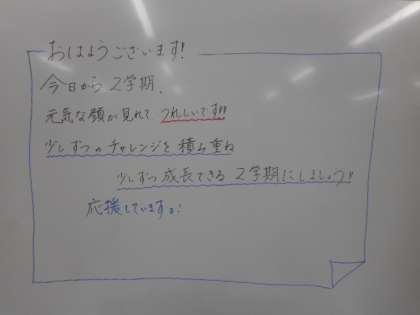 おはようございます!
今日から 2学期.
元気な顔が見れて うれしいです!!
少しずつのチャレンジを 積み重ね
少しずつ 成長できる 2学期にしましょう!!
応援しています♪!